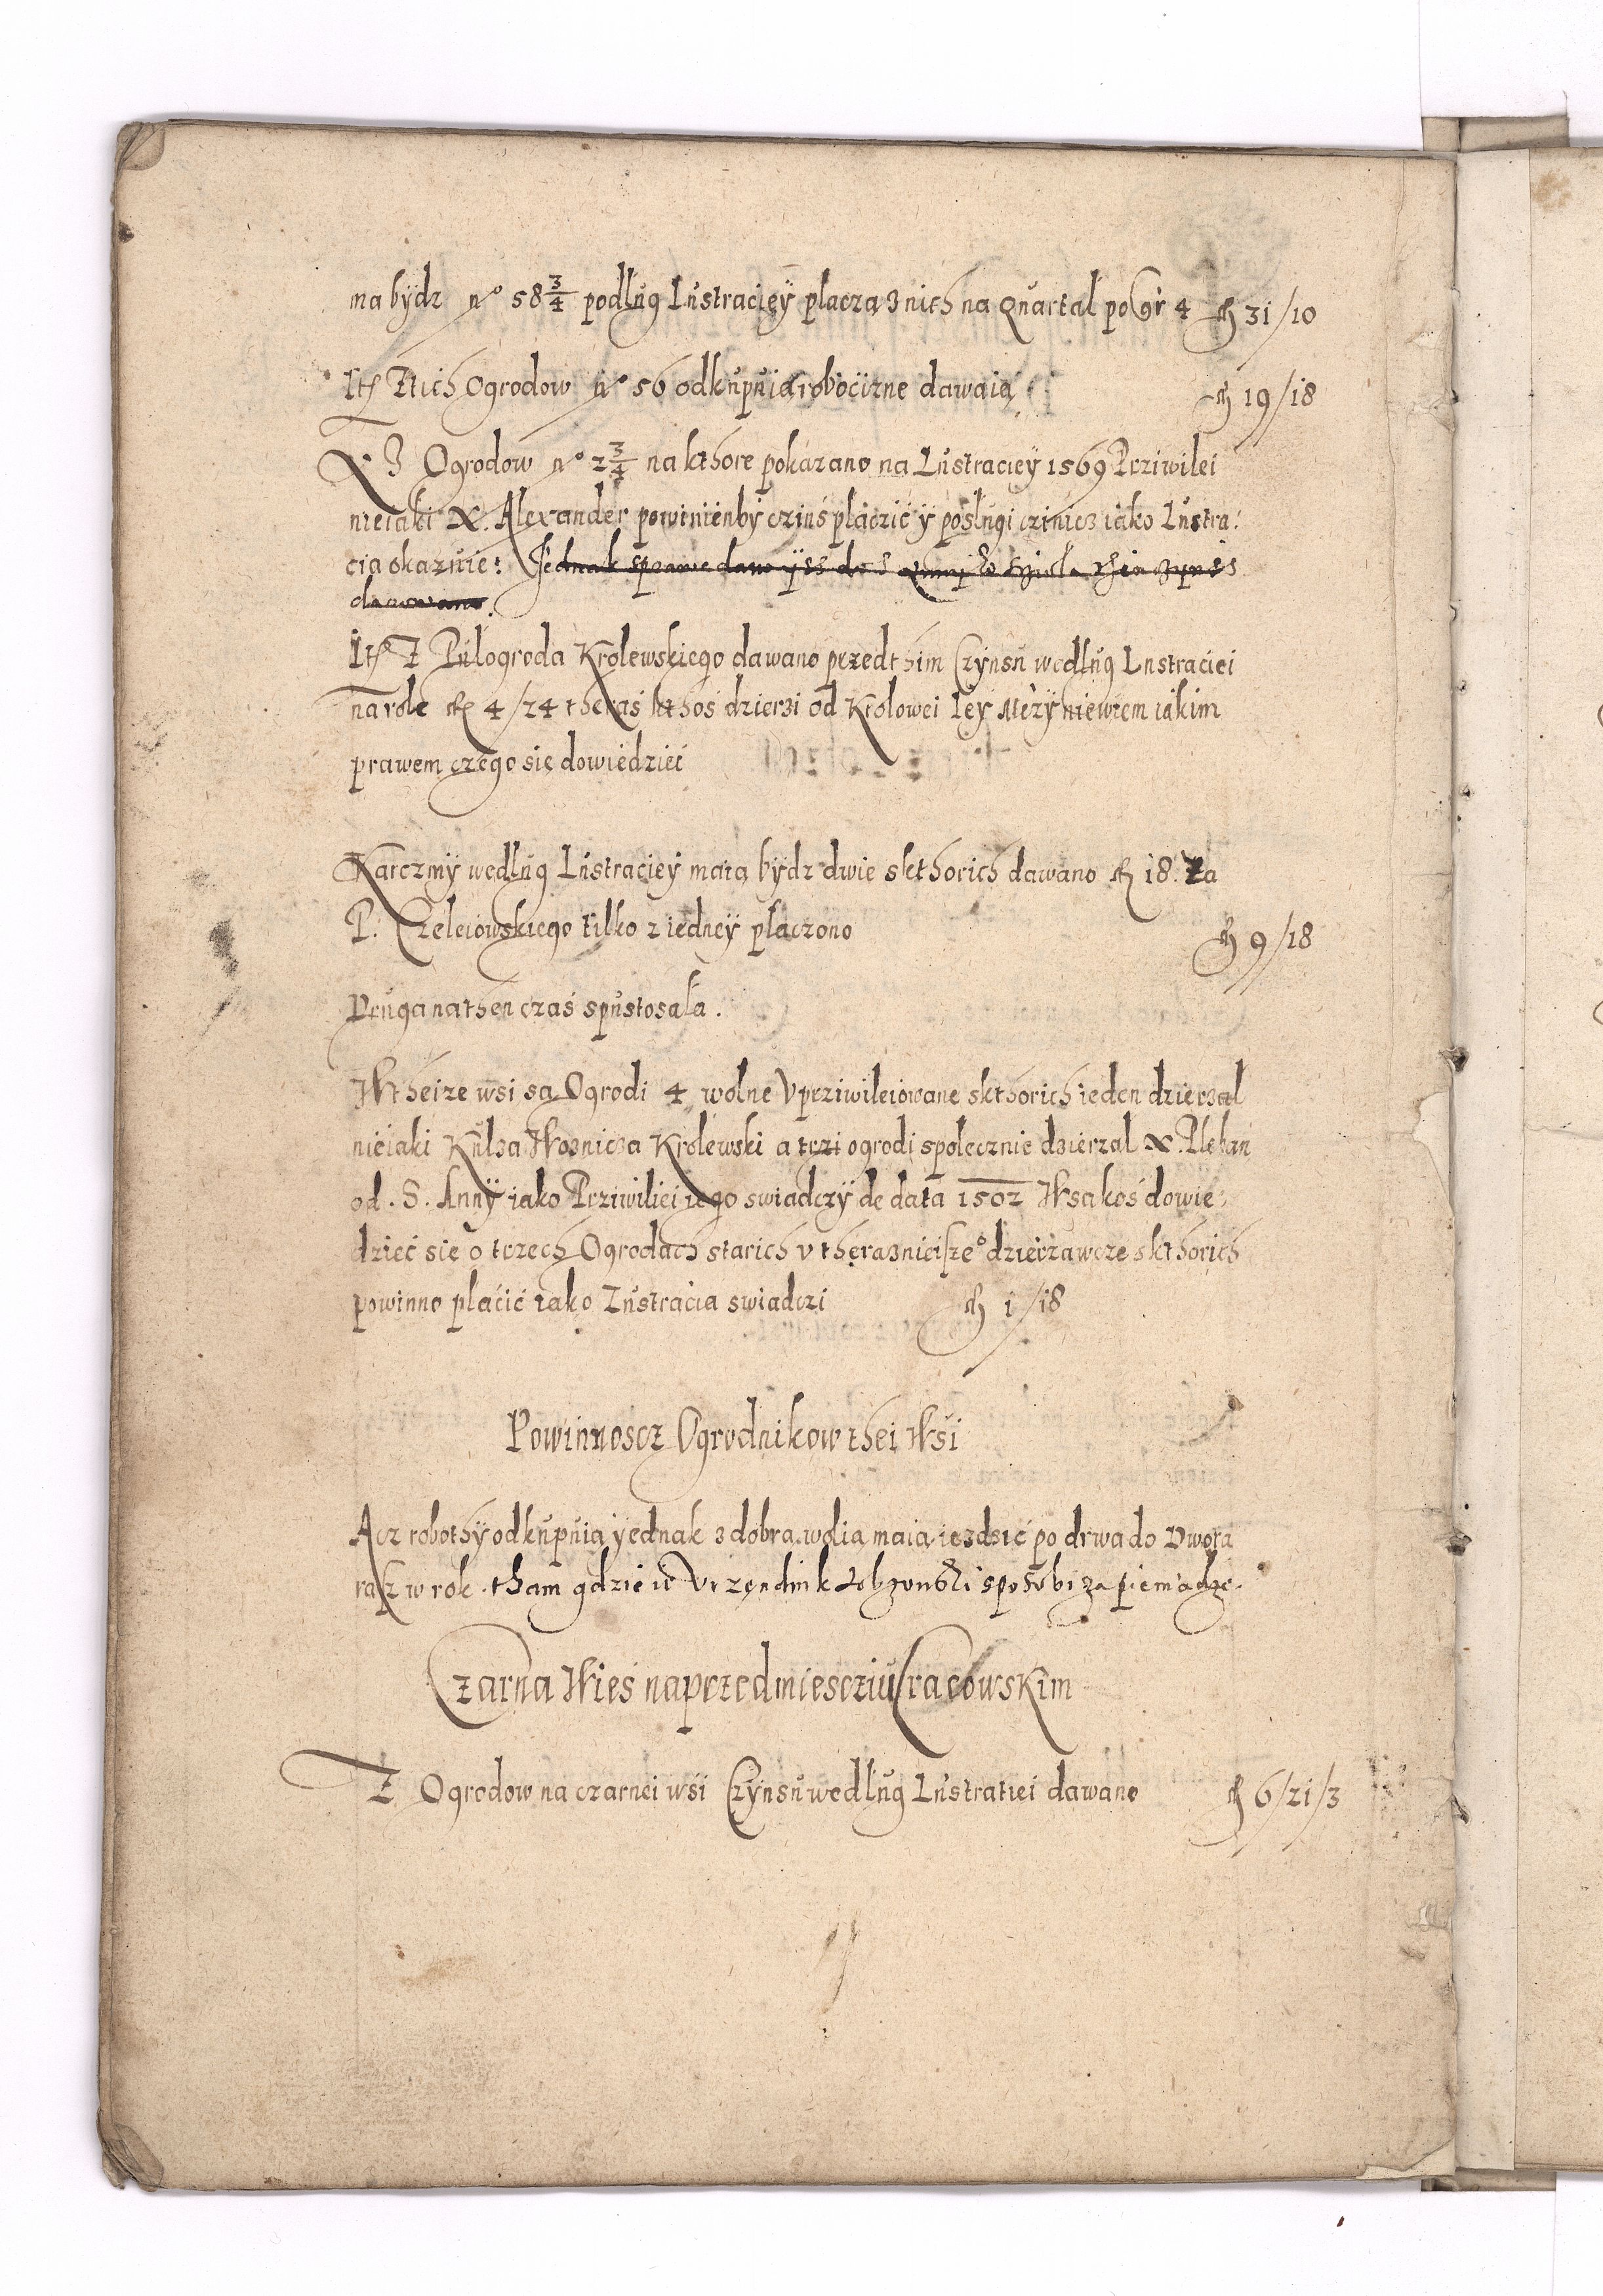 ma bÿdz nº 58 3/4 podlug Lustraciey placza z nich na Quartal po gr 4 fl 31/10
Itē Z tich Ogrodow nº 56 odkupuia robocizne dawaią fl 19/18
X Z Ogrodow nº 2 3/4 na kthore pokazano na Lustraciey 1569 Prziwilei
nieiaki X. Alexander powinienby czins placzić ÿ poslugi czinicz iako Lustra:
cia okazuie: Jednak sprawe dano ysz
darowano.
Itē Z Pulogroda Krolewskiego dawano przedthim Czÿnsu wedlug Lustraciei
na role fl 4/24 theraś kthoś dzierzi od Krolowei Iey Mczÿ niewiem iakim
prawem czego się dowiedzieć
Karczmÿ wedlug Lustracieÿ maia bÿdz dwie s kthorich dawano fl 18. Za
P. Czeleiowskiego tilko z iedneÿ placzono fl 9/18
Druga na then czas spustosala.
W theize wsi są Ogrodi 4 wolne Uprziwileiowane s kthorich ieden dzierzal
nieiaki Kulza Woznicza Krolewski a trzi ogrodi spolecznie dzierzal X. Pleban
od. S. Annÿ iako Prziwiliei iego swiadczÿ de data 1502 Wsakoś dowie:
dzieć sie o trzech Ogrodach starich u theraznieiszeº dzierzawcze s kthorich
powinno placić iako Lustracia swiadczi fl 1/18
Powinnoscz Ogrodnikow thei Wsi
Acz robothÿ odkupuia ÿednak z dobra wolia maia iezdzić po drwa do Dwora
rasz w rok. tham gdzie ie Urzendnik Lobzowski sposobi za pieniadze.
Czarna Wieś na przedmiescziu Cracowskim
Z Ogrodow na czarnei wsi Czÿnsu wedlug Lustratiei dawano fl 6/21/3